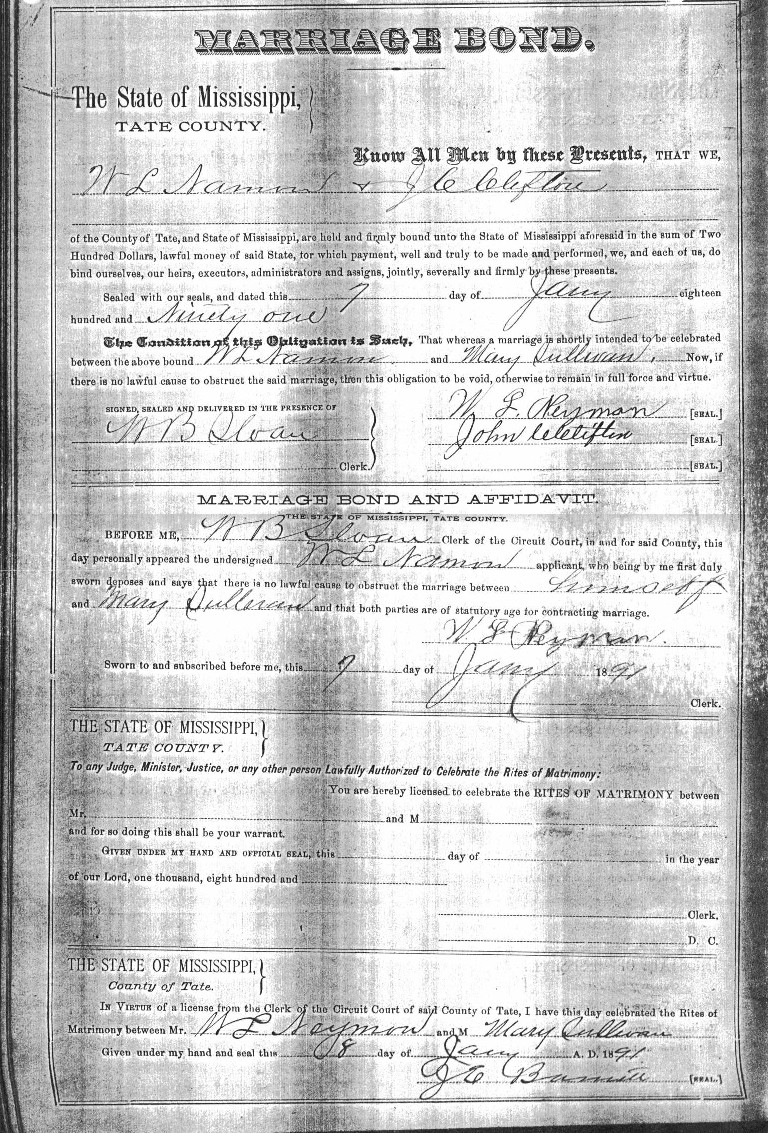 MARRIAGE BOND.
The State of Mississippi,
TATE COUNTY.
Know All Men by these Presents, THAT WE,
W L Namon & J C Clifton
of the County of Tate, and State of Mississippi, are held and firmly bound unto the State of Mississippi aforesaid in the sum of Two
Hundred Dollars, lawful money of said State, for which payment, well and truly to be made and performed, we, and each of us, do
bind ourselves, our heirs, executors, administrators and assigns, jointly, severally and firmly by these presents.
Sealed with our seals, and dated this 7 day of Jany eighteen
hundred and Ninety one
The Condition of this Obligation is Such, That whereas a marriage is shortly intended to be celebrated
between the above bound W L Namon and Mary Sullivan. Now, if
there is no lawful cause to obstruct the said marriage, then this obligation to be void, otherwise to remain in full force and virtue.
SIGNED, SEALED AND DELIVERED IN THE PRESENCE OF
W. L. Neyman [SEAL.]
W B Sloan
John C Clifton [SEAL.]
Clerk. [SEAL.]
MARRIAGE BOND AND AFFIDAVIT.
THE STATE OF MISSISSIPPI, TATE COUNTY.
BEFORE ME, W B Sloan Clerk of the Circuit Court, in and for said County, this
day personally appeared the undersigned W L Namon applicant, who being by me first duly
sworn deposes and says that there is no lawful cause to obstruct the marriage between himself
and Mary Sullivan and that both parties are of statutory age for contracting marriage.
W. L. Neyman.
Sworn to and subscribed before me, this 7 day of Jany 1891
Clerk.
THE STATE OF MISSISSIPPI,
TATE COUNTY.
To any Judge, Minister, Justice, or any other person Lawfully Authorized to Celebrate the Rites of Matrimony:
You are hereby licensed to celebrate the RITES OF MATRIMONY between
Mr. and M
and for so doing this shall be your warrant.
GIVEN UNDER MY HAND AND OFFICIAL SEAL, this day of in the year
of our Lord, one thousand, eight hundred and
Clerk.
D. C.
THE STATE OF MISSISSIPPI,
County of Tate.
IN VIRTUE of a license from the Clerk of the Circuit Court of said County of Tate, I have this day celebrated the Rites of
Matrimony between Mr. W L Neymon and M Mary Sullivan
Given under my hand and seal this 8 day of Jany A. D. 1891
J C [SEAL.]